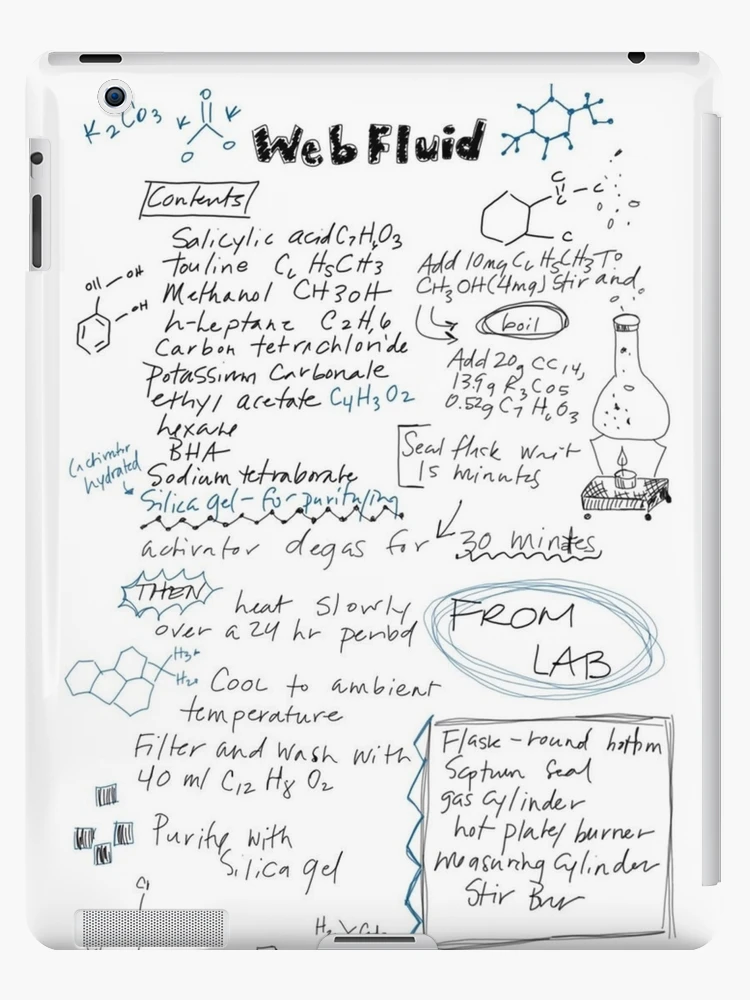 K2CO3
O
K K
O O
Web Fluid
Contents
Salicylic acid C7H6O3
touline C6H5CH3
Methanol CH3OH
n-heptane C2H,6
Carbon tetrachloride
potassium Carbonate
ethyl acetate C4H3O2
hexane
BHA
Sodium tetraborate
Silica gel - for puritying
(activator
hydrated
OH
OH
C
C
C
C
Add 10mg C6H5CH3 To
CH3OH(4mg) Stir and
boil
Add 20g CC14,
13.9g K3CO5
0.52g C7H6O3
Seal flask wait
15 minutes
activator degas for 30 mintes
THEN
heat slowly
over a 24 hr period
FROM
LAB
H3+
H20
Cool to ambient
temperature
Filter and wash with
40 ml C12 H8 O2
Purity with
Silica gel
Cl
Flask - round bottom
Septum Seal
gas cylinder
hot plate/ burner
measuring Cylinder
Stir Bar